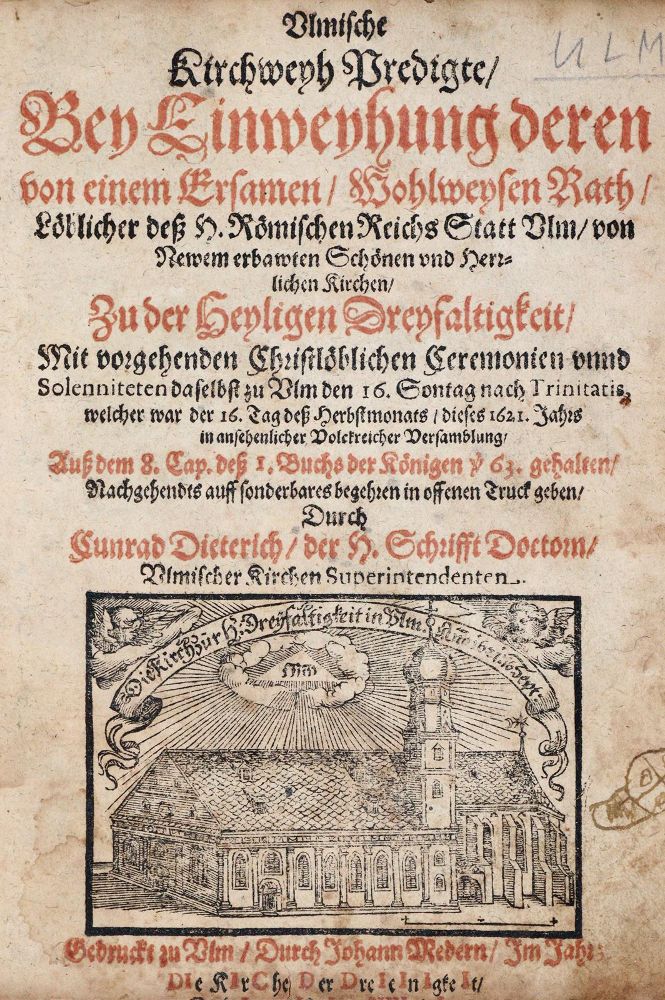 Vlmische
ULM
Kirchweyh Predigte/
Bey Einweyhung deren
von einem Ersamen/ Wohlweysen Rath/
Löblicher deß H. Römischen Reichs Statt Vlm/ von
Newem erbawten Schönen vnd Herr⸗
lichen Kirchen/
Zu der Heyligen Dreyfaltigkeit/
Mit vorgehenden Christlöblichen Ceremonien vnnd
Solenniteten daselbst zu Vlm den 16. Sontag nach Trinitatis,
welcher war der 16. Tag deß Herbstmonats/ dieses 1621. Jahrs
in ansehenlicher Volckreicher Versamblung/
Auß dem 8. Cap. deß 1. Buchs der Königen ℣ 63. gehalten/
Nachgehendts auff sonderbares begehren in offenen Truck geben/
Durch
Cunrad Dieterich/ der H. Schrifft Doctorn/
Vlmischer Kirchen Superintendenten.
Die Kirch zur H. Dreyfaltigkeit in Vlm.
Gedruckt zu Vlm/ Durch Johann Medern/ Im Jahr:
DIe KIrChe Der DreIeInIgkeIt/